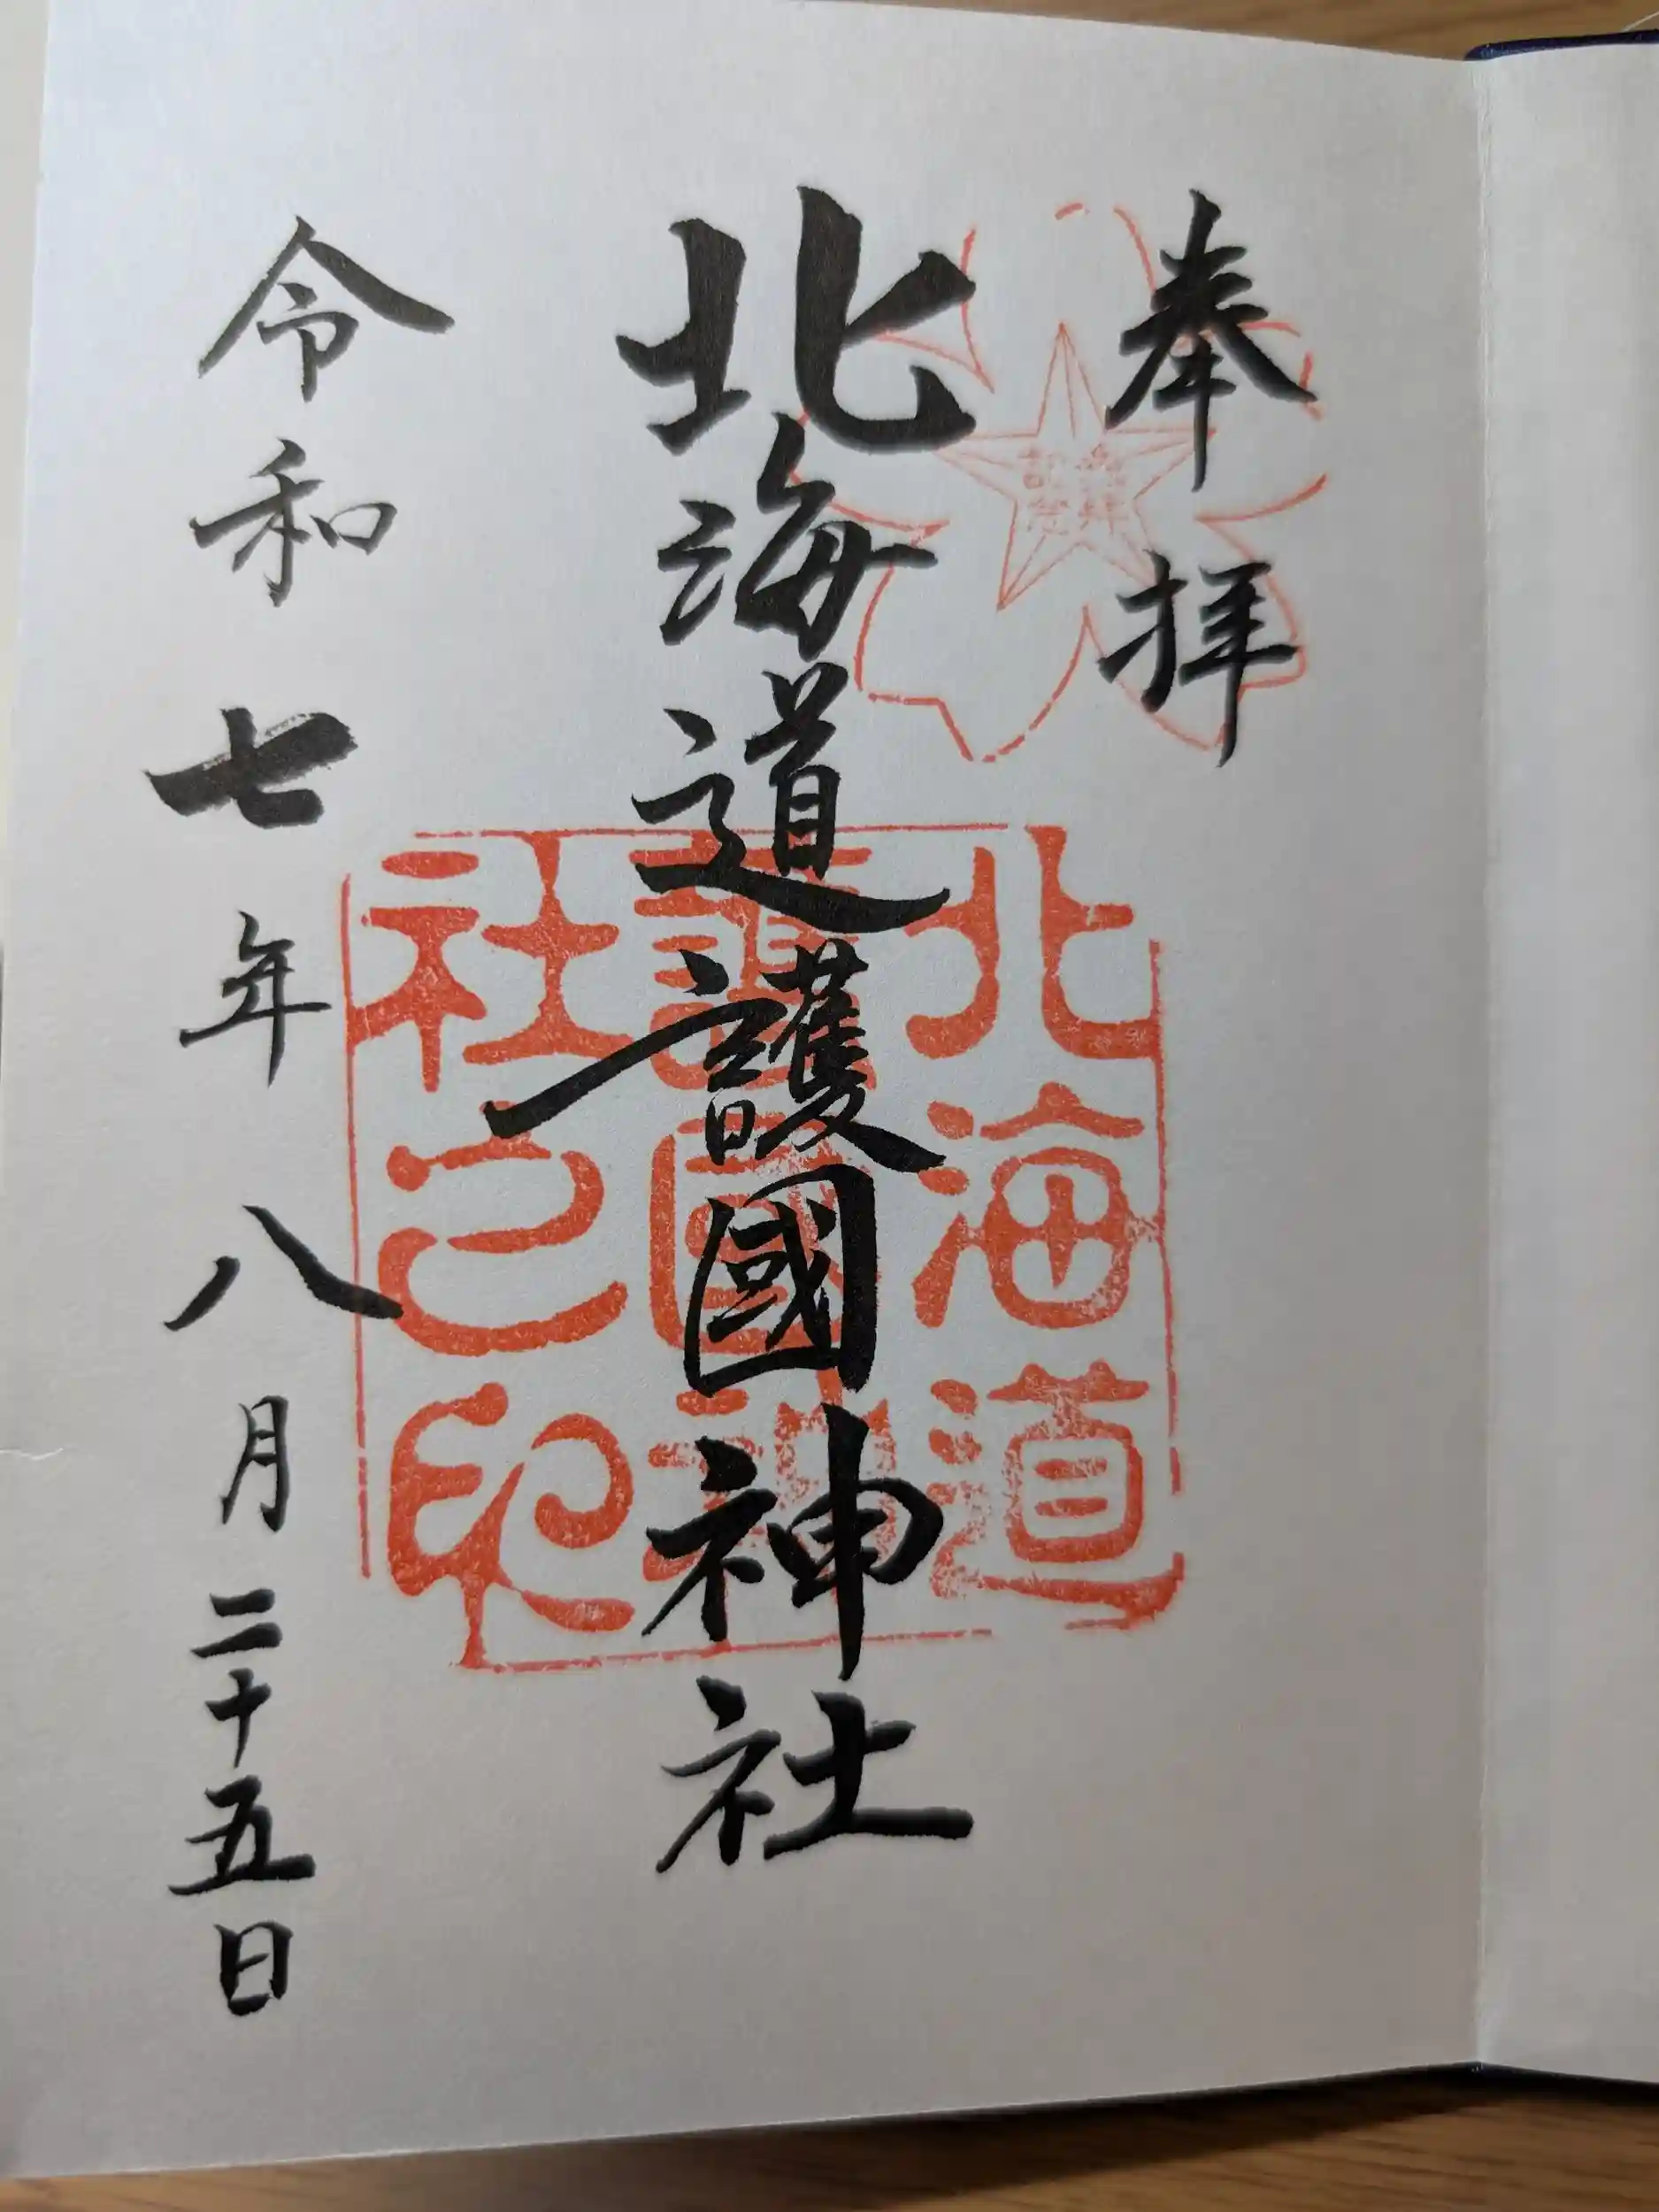 奉拝
参拝記念
北海道護國神社
北海道護國神社之印
令和七年八月二十五日